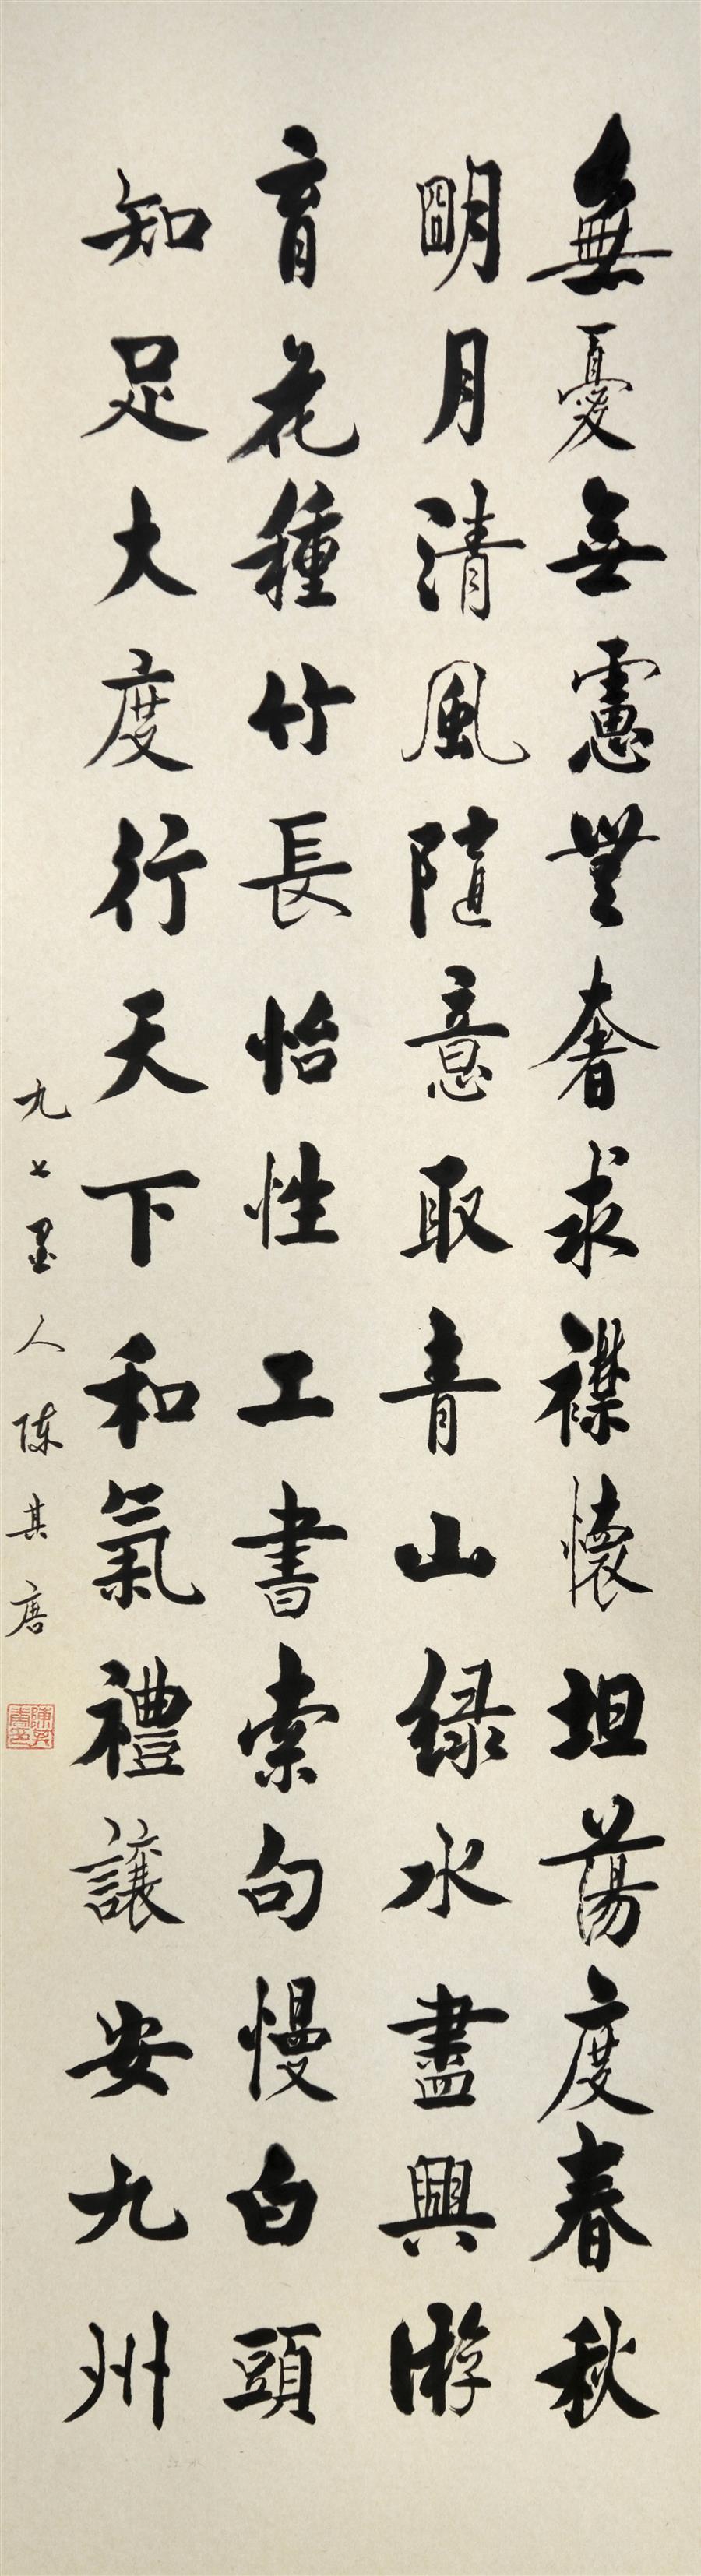 無憂無慮無奢求襟懷坦蕩度春秋
明月清風隨意取青山緑水盡興游
育花種竹長怡性工書索句慢白頭
知足大度行天下和氣禮讓安九州
九七叟人陳其唐